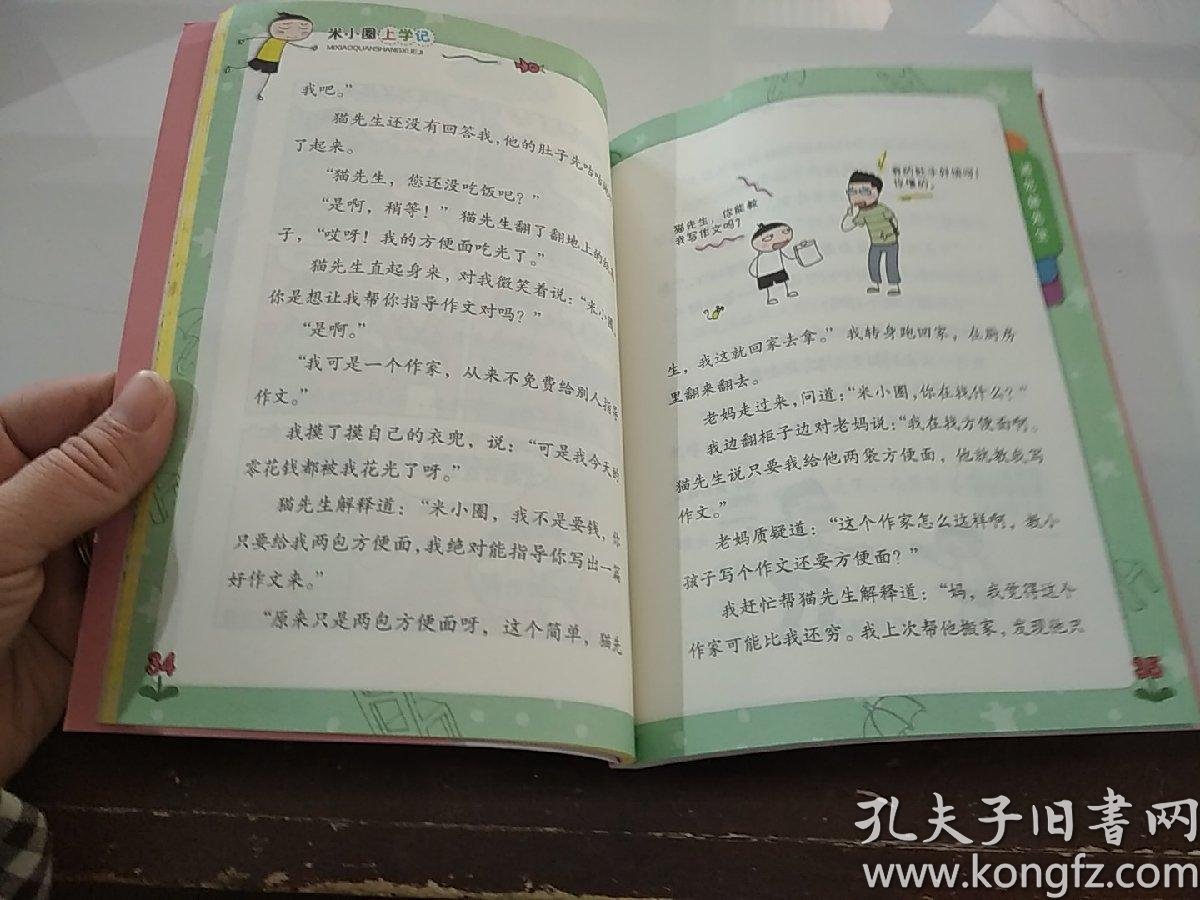 米小圈上学记
MIXIAOQUANSHANGXUEJI
我吧。”
猫先生还没有回答我，他的肚子先咕咕
了起来。
“猫先生，您还没吃饭吧？”
“是啊，稍等！”猫先生翻了翻地上的
子，“哎呀！我的方便面吃光了。”
猫先生直起身来，对我微笑着说：“米小圈，
你是想让我帮你指导作文对吗？”
“是啊。”
“我可是一个作家，从来不免费给别人指导
作文。”
我摸了摸自己的衣兜，说：“可是我今天的
零花钱都被我花光了呀。”
猫先生解释道：“米小圈，我不是要钱，你
只要给我两包方便面，我绝对能指导你写出一篇
好作文来。”
“原来只是两包方便面呀，这个简单，猫先
34
猫先生，你能教
我写作文吗？
我的肚子好饿呀！
你懂的。
生，我这就回家去拿。”我转身跑回家，在厨房
里翻来翻去。
老妈走过来，问道：“米小圈，你在找什么？”
我边翻柜子边对老妈说：“我在找方便面啊。
猫先生说只要我给他两袋方便面，他就教我写
作文。”
老妈质疑道：“这个作家怎么这样啊，教小
孩子写个作文还要方便面？”
我赶忙帮猫先生解释道：“妈，我觉得这个
作家可能比我还穷。我上次帮他搬家，发现他只
35
孔夫子旧书网
www.kongfz.com